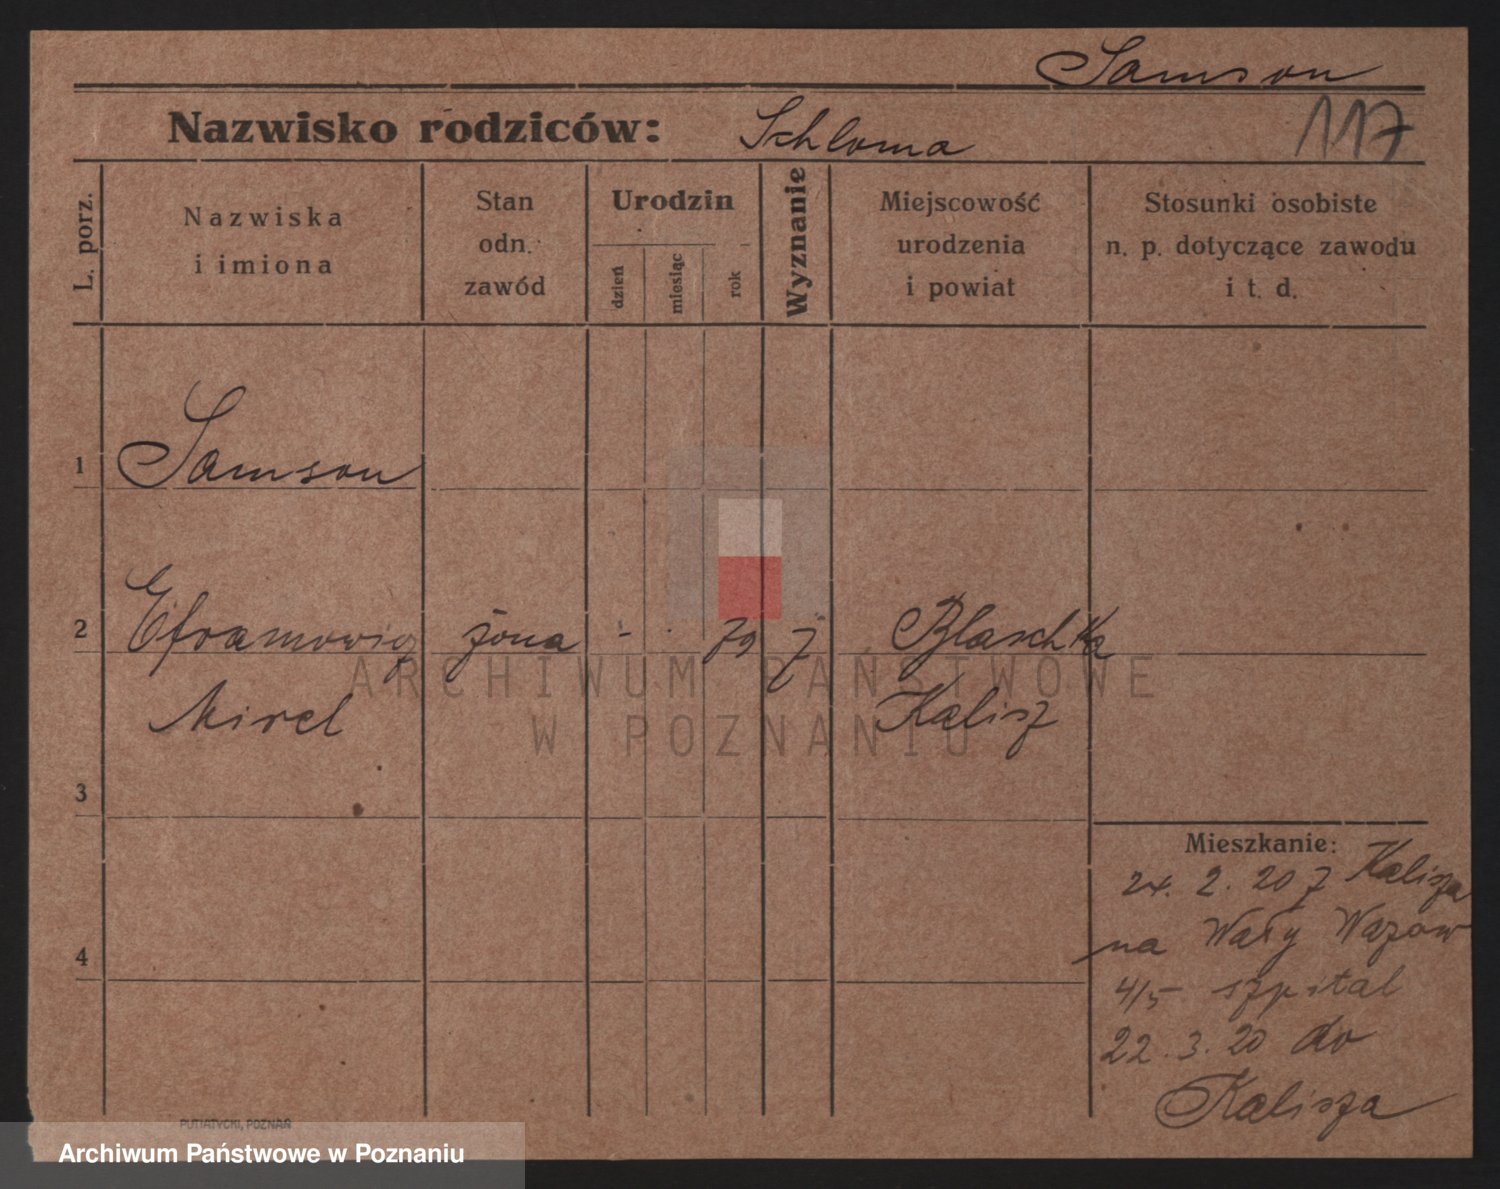 Samson
Nazwisko rodziców: Schloma 117
L. porz.
Nazwiska
i imiona
Stan
odn.
zawód
Urodzin
dzień
miesiąc
rok
Wyznanie
Miejscowość
urodzenia
i powiat
Stosunki osobiste
n. p. dotyczące zawodu
i t. d.
1 Samson
2 Eframowicz żona - . 79 ż Blaschka
Mirel Kalisz
3
Mieszkanie:
24. 2. 20 z Kalisza
na Wały Wazów
4/5 szpital
4
22. 3. 20 do
Kalisza
PUTIATYCKI, POZNAŃ
ARCHIWUM PAŃSTWOWE
W POZNANIU
Archiwum Państwowe w Poznaniu